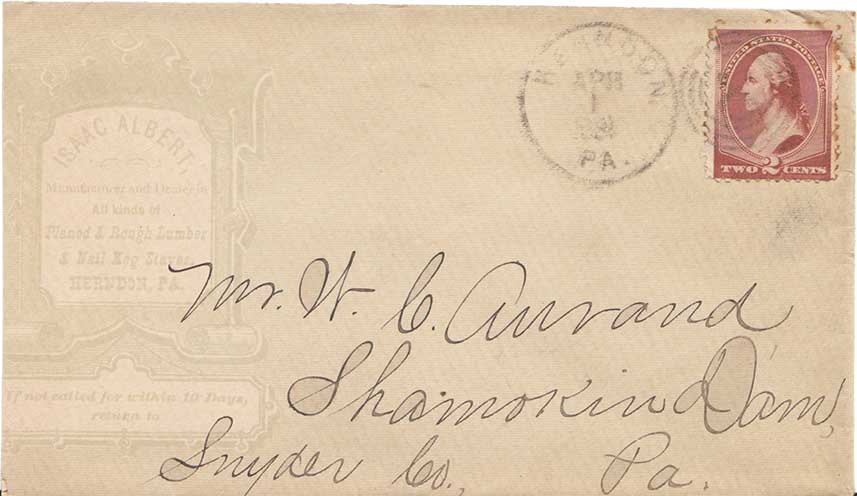 ISAAC ALBERT,
Manufacturer and Dealer in
All kinds of
Planed & Rough Lumber
& Nail Keg Staves,
HERNDON, PA.
If not called for within 10 Days,
return to
HERNDON
APR
1
PA.
UNITED STATES POSTAGE
TWO 2 CENTS
Mr. W. C. Aurand
Shamokin Dam,
Snyder Co., Pa.